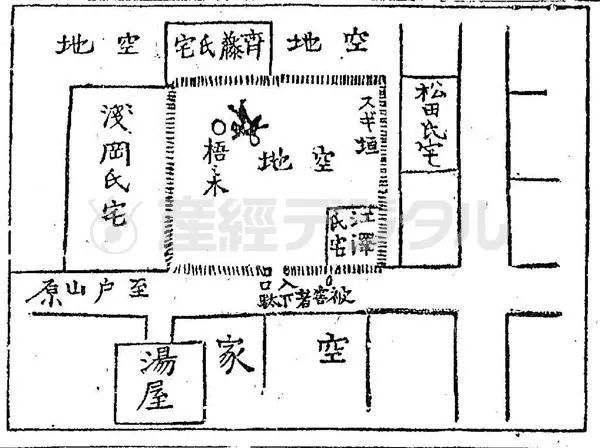 空地
齊藤氏宅
空地
松田氏宅
スギ垣
空地
梧ノ木
淺岡氏宅
江澤氏宅
被害者下駄
入口
至戸山原
空家
湯屋
産經デジタル